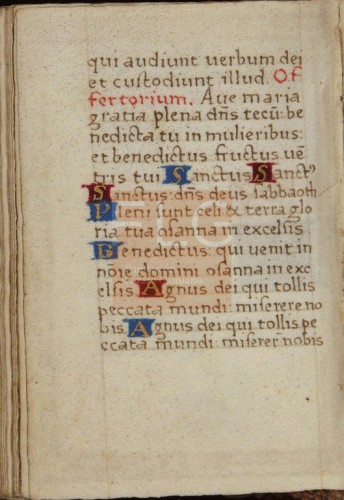 qui audiunt verbum dei
et custodiunt illud. Of
fertorium. Ave maria
gratia plena dn̄s tecū: be
nedicta tu in mulieribus:
et benedictus fructus vē
tris tui Sanctus Sanctꝰ
Sanctus: dn̄s deus sabbaoth
Pleni sunt celi & terra glo
ria tua osanna in excelsis
Benedictus: qui venit in
nōie domini osanna in exc
elsis Agnus dei qui tollis
peccata mundi: miserere no
bis Agnus dei qui tollis pe
ccata mundi: miserer nobis